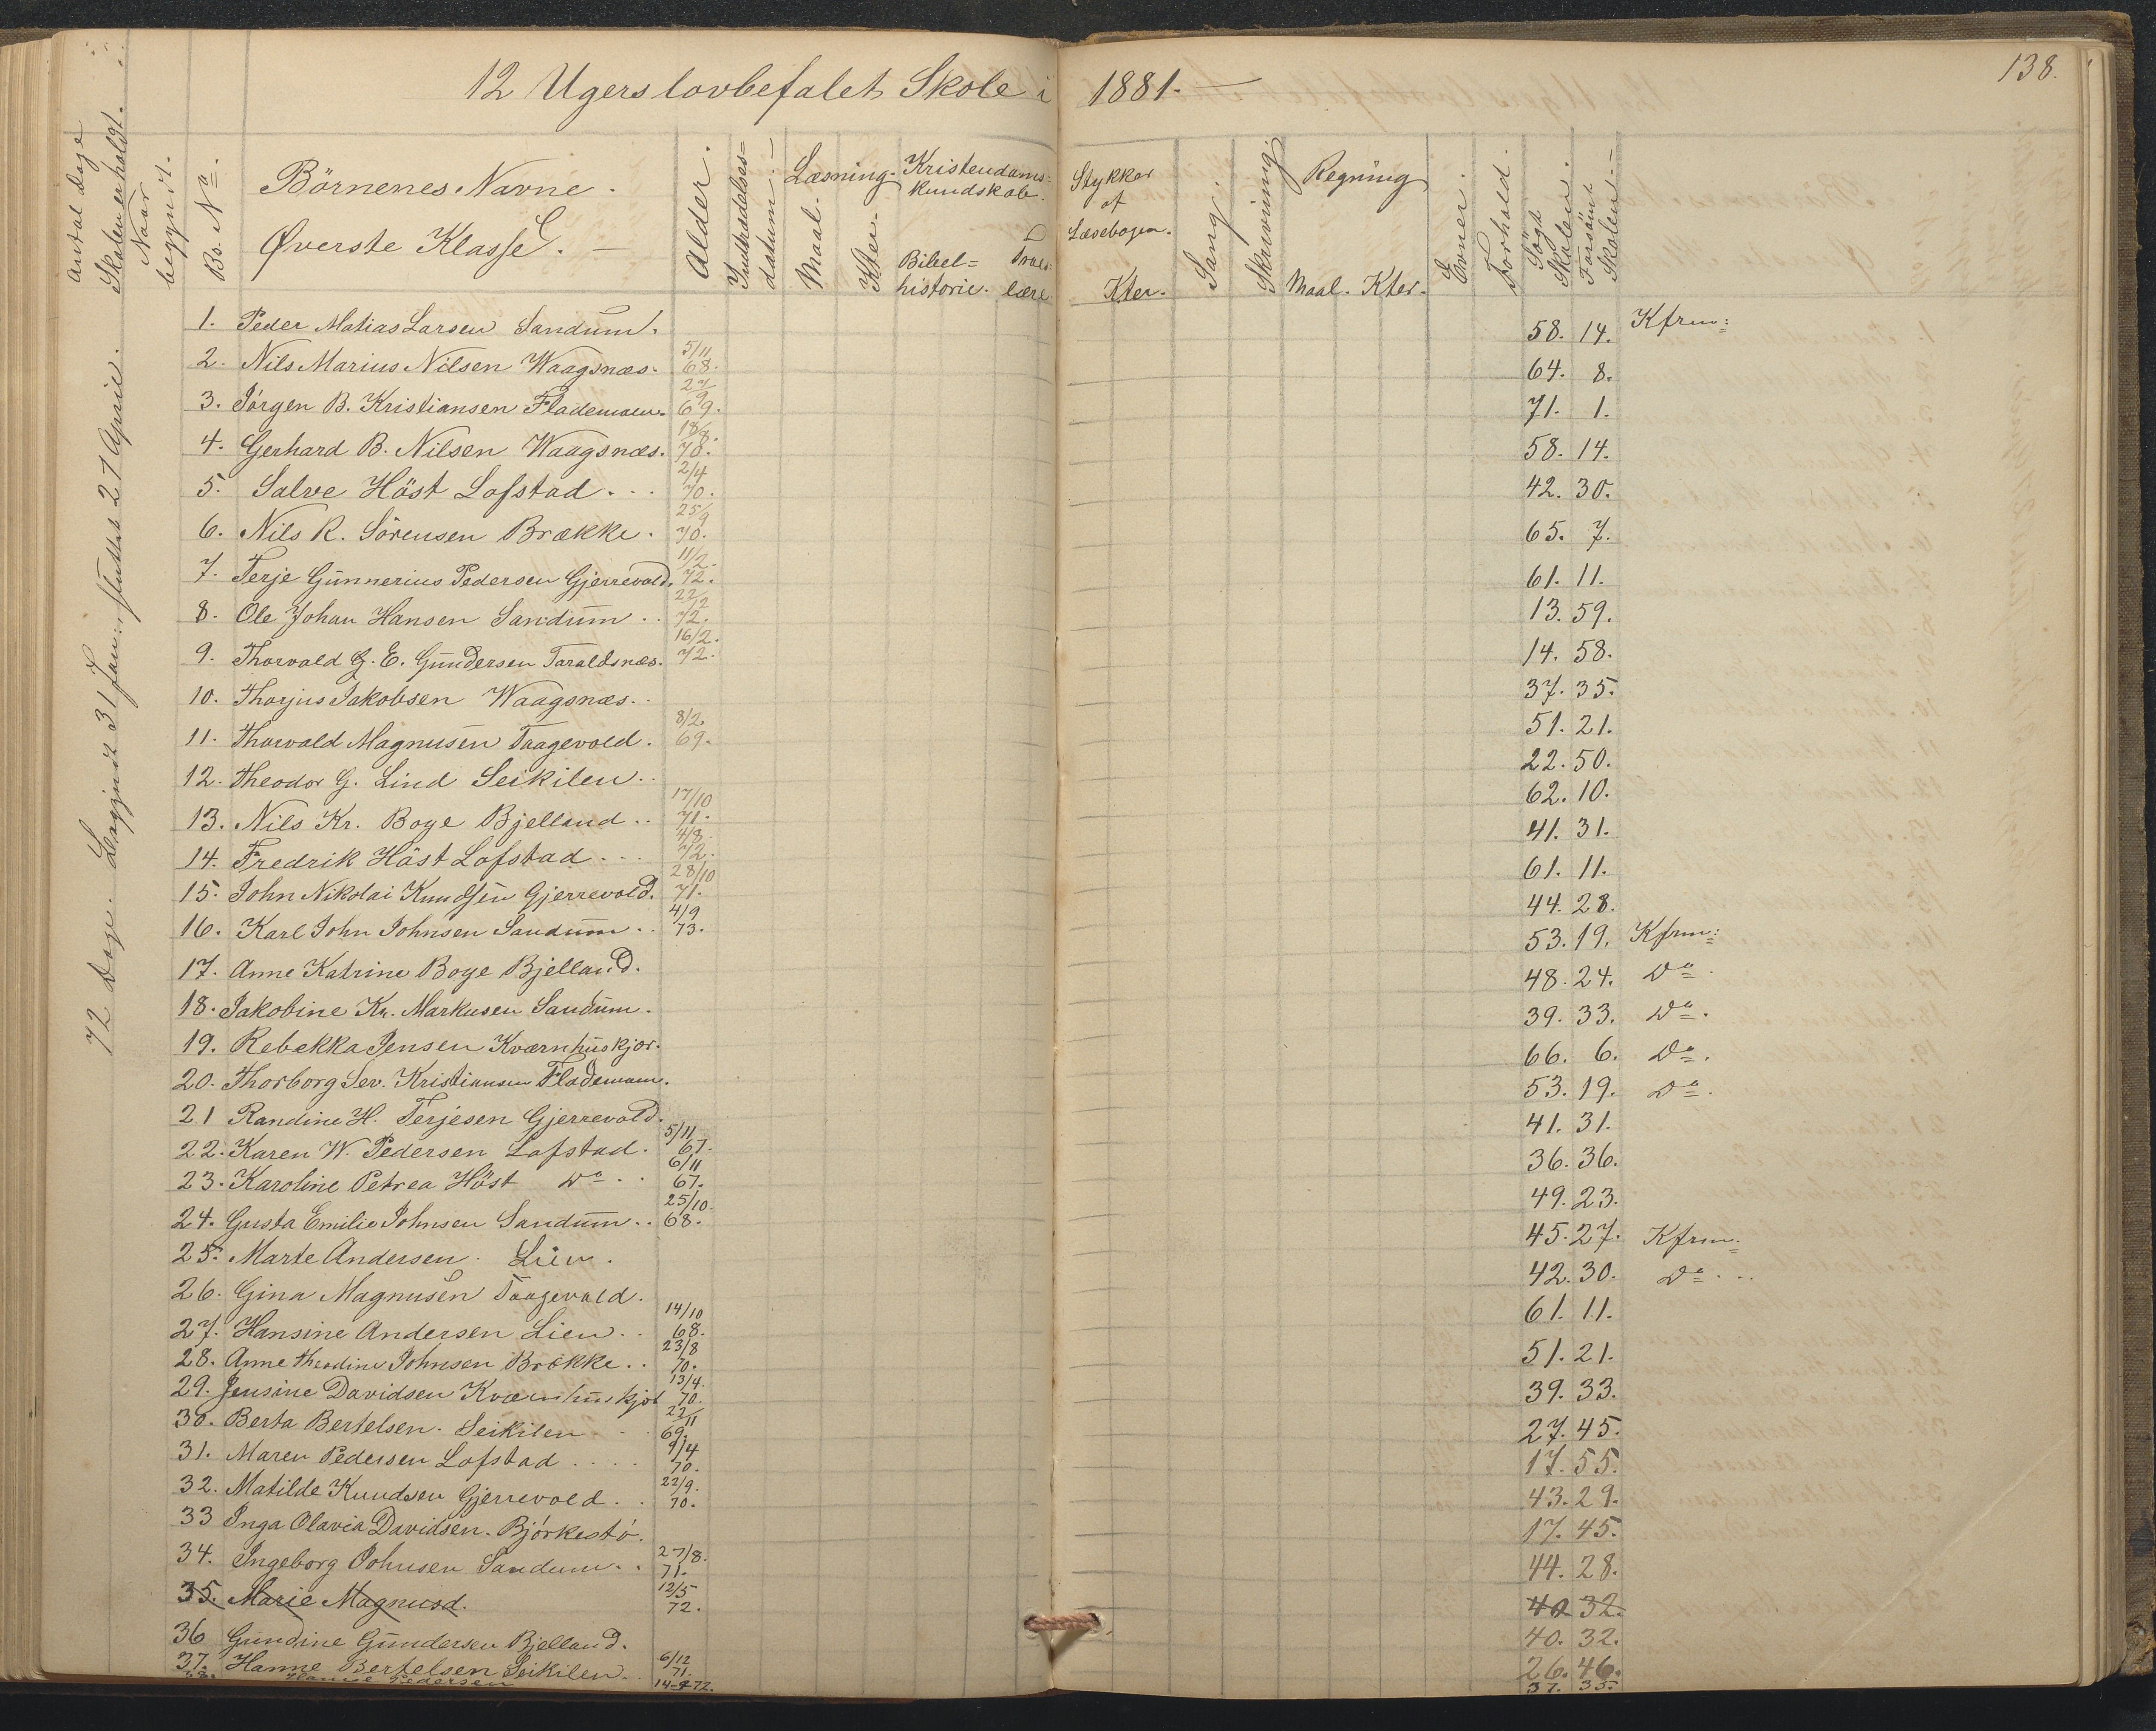 12 Ugers lovbefalet Skole i 1881. —
138.
Antal Dage Skolen er holdt.
Naar begyndt.
Bs. No.
Börnenes Navne.
Øverste Klasse. —
Alder.
Indtrædelsesdatum. —
Læsning. Maal. Kter.
Kristendomskundskab. Bibelhistorie. Troeslære.
Stykker af Læsebogen. Kter.
Sang.
Skrivning.
Regning Maal. Kter.
Evner.
Forhold.
Sögt Skolen.
Forsömt Skolen. —
72 Dage. Begyndt 31 Jan: sluttet 27 April.
1. Peder Matias Larsen Sandum. 58. 14. Kfrm:
2. Nils Marius Nilsen Waagsnæs. 5/11 68. 64. 8.
3. Jörgen B. Kristiansen Flademoen. 27/9 69. 71. 1.
4. Gerhard B. Nilsen Waagsnæs. 18/8. 70. 58. 14.
5. Salve Höst Lofstad . . . 2/4 70. 42. 30.
6. Nils R. Sörensen Brække. 25/9 70. 65. 7.
7. Terje Gunnerius Pedersen Gjerrevold. 11/2. 72. 61. 11.
8. Ole Johan Hansen Sandum . . 22/12 72. 13. 59.
9. Thorvald G. E. Gundersen Taraldsnæs. 16/2. 72. 14. 58.
10. Thorjus Jakobsen Waagsnæs. . 37. 35.
11. Thorvald Magnusen Taagevold. 8/2. 69. 51. 21.
12. Theodor G. Lind Seikilen. . 22. 50.
13. Nils Kr. Boye Bjelland . . 17/10 71. 62. 10.
14. Fredrik Höst Lofstad . . . 4/8. 72. 41. 31.
15. John Nikolai Knudsen Gjerrevold. 28/10 71. 61. 11.
16. Karl John Johnsen Sandum . . 4/9 73. 44. 28.
17. Anne Katrine Boye Bjelland. 53. 19. Kfrm:
18. Jakobine Kr. Markusen Sandum. 48. 24. Do.
19. Rebekka Jensen Kværnhuskjær. 39. 33. Do.
20. Thorborg Sev. Kristiansen Flademoen. 66. 6. Do.
21 Randine H. Terjesen Gjerrevold. 53. 19. Do.
22. Karen W. Pedersen Lofstad. 5/11 67. 41. 31.
23. Karoline Petrea Höst Do . . 6/11 67. 36. 36.
24. Gusta Emilie Johnsen Sandum . . 25/10. 68. 49. 23.
25. Marte Andersen. Lien. 45. 27. Kfrm:
26. Gina Magnusen Taagevold. 42. 30. Do . . .
27. Hansine Andersen Lien . . 14/10 68. 61. 11.
28. Anne Theodine Johnsen Brække . . 23/8 70. 51. 21.
29. Jensine Davidsen Kværnhuskjær 13/4. 70. 39. 33.
30. Berta Bertelsen. Seikilen . . 22/11 69. 27. 45.
31. Maren Pedersen Lofstad . . . . 9/4 70. 17. 55.
32. Matilde Knudsen Gjerrevold . . 22/9. 70. 43. 29.
33 Inga Olavia Davidsen. Björkestö. 17. 45.
34. Ingeborg Johnsen Sandum . . 27/8. 71. 44. 28.
35. Marie Magnusd. 12/5 72. 40 32.
36 Gundine Gundersen Bjelland. 40. 32.
37. Hanne Bertelsen Seikilen . . 6/12 71. 26. 46.
38. Hanne Pedersen 14-9 72. 37. 35.